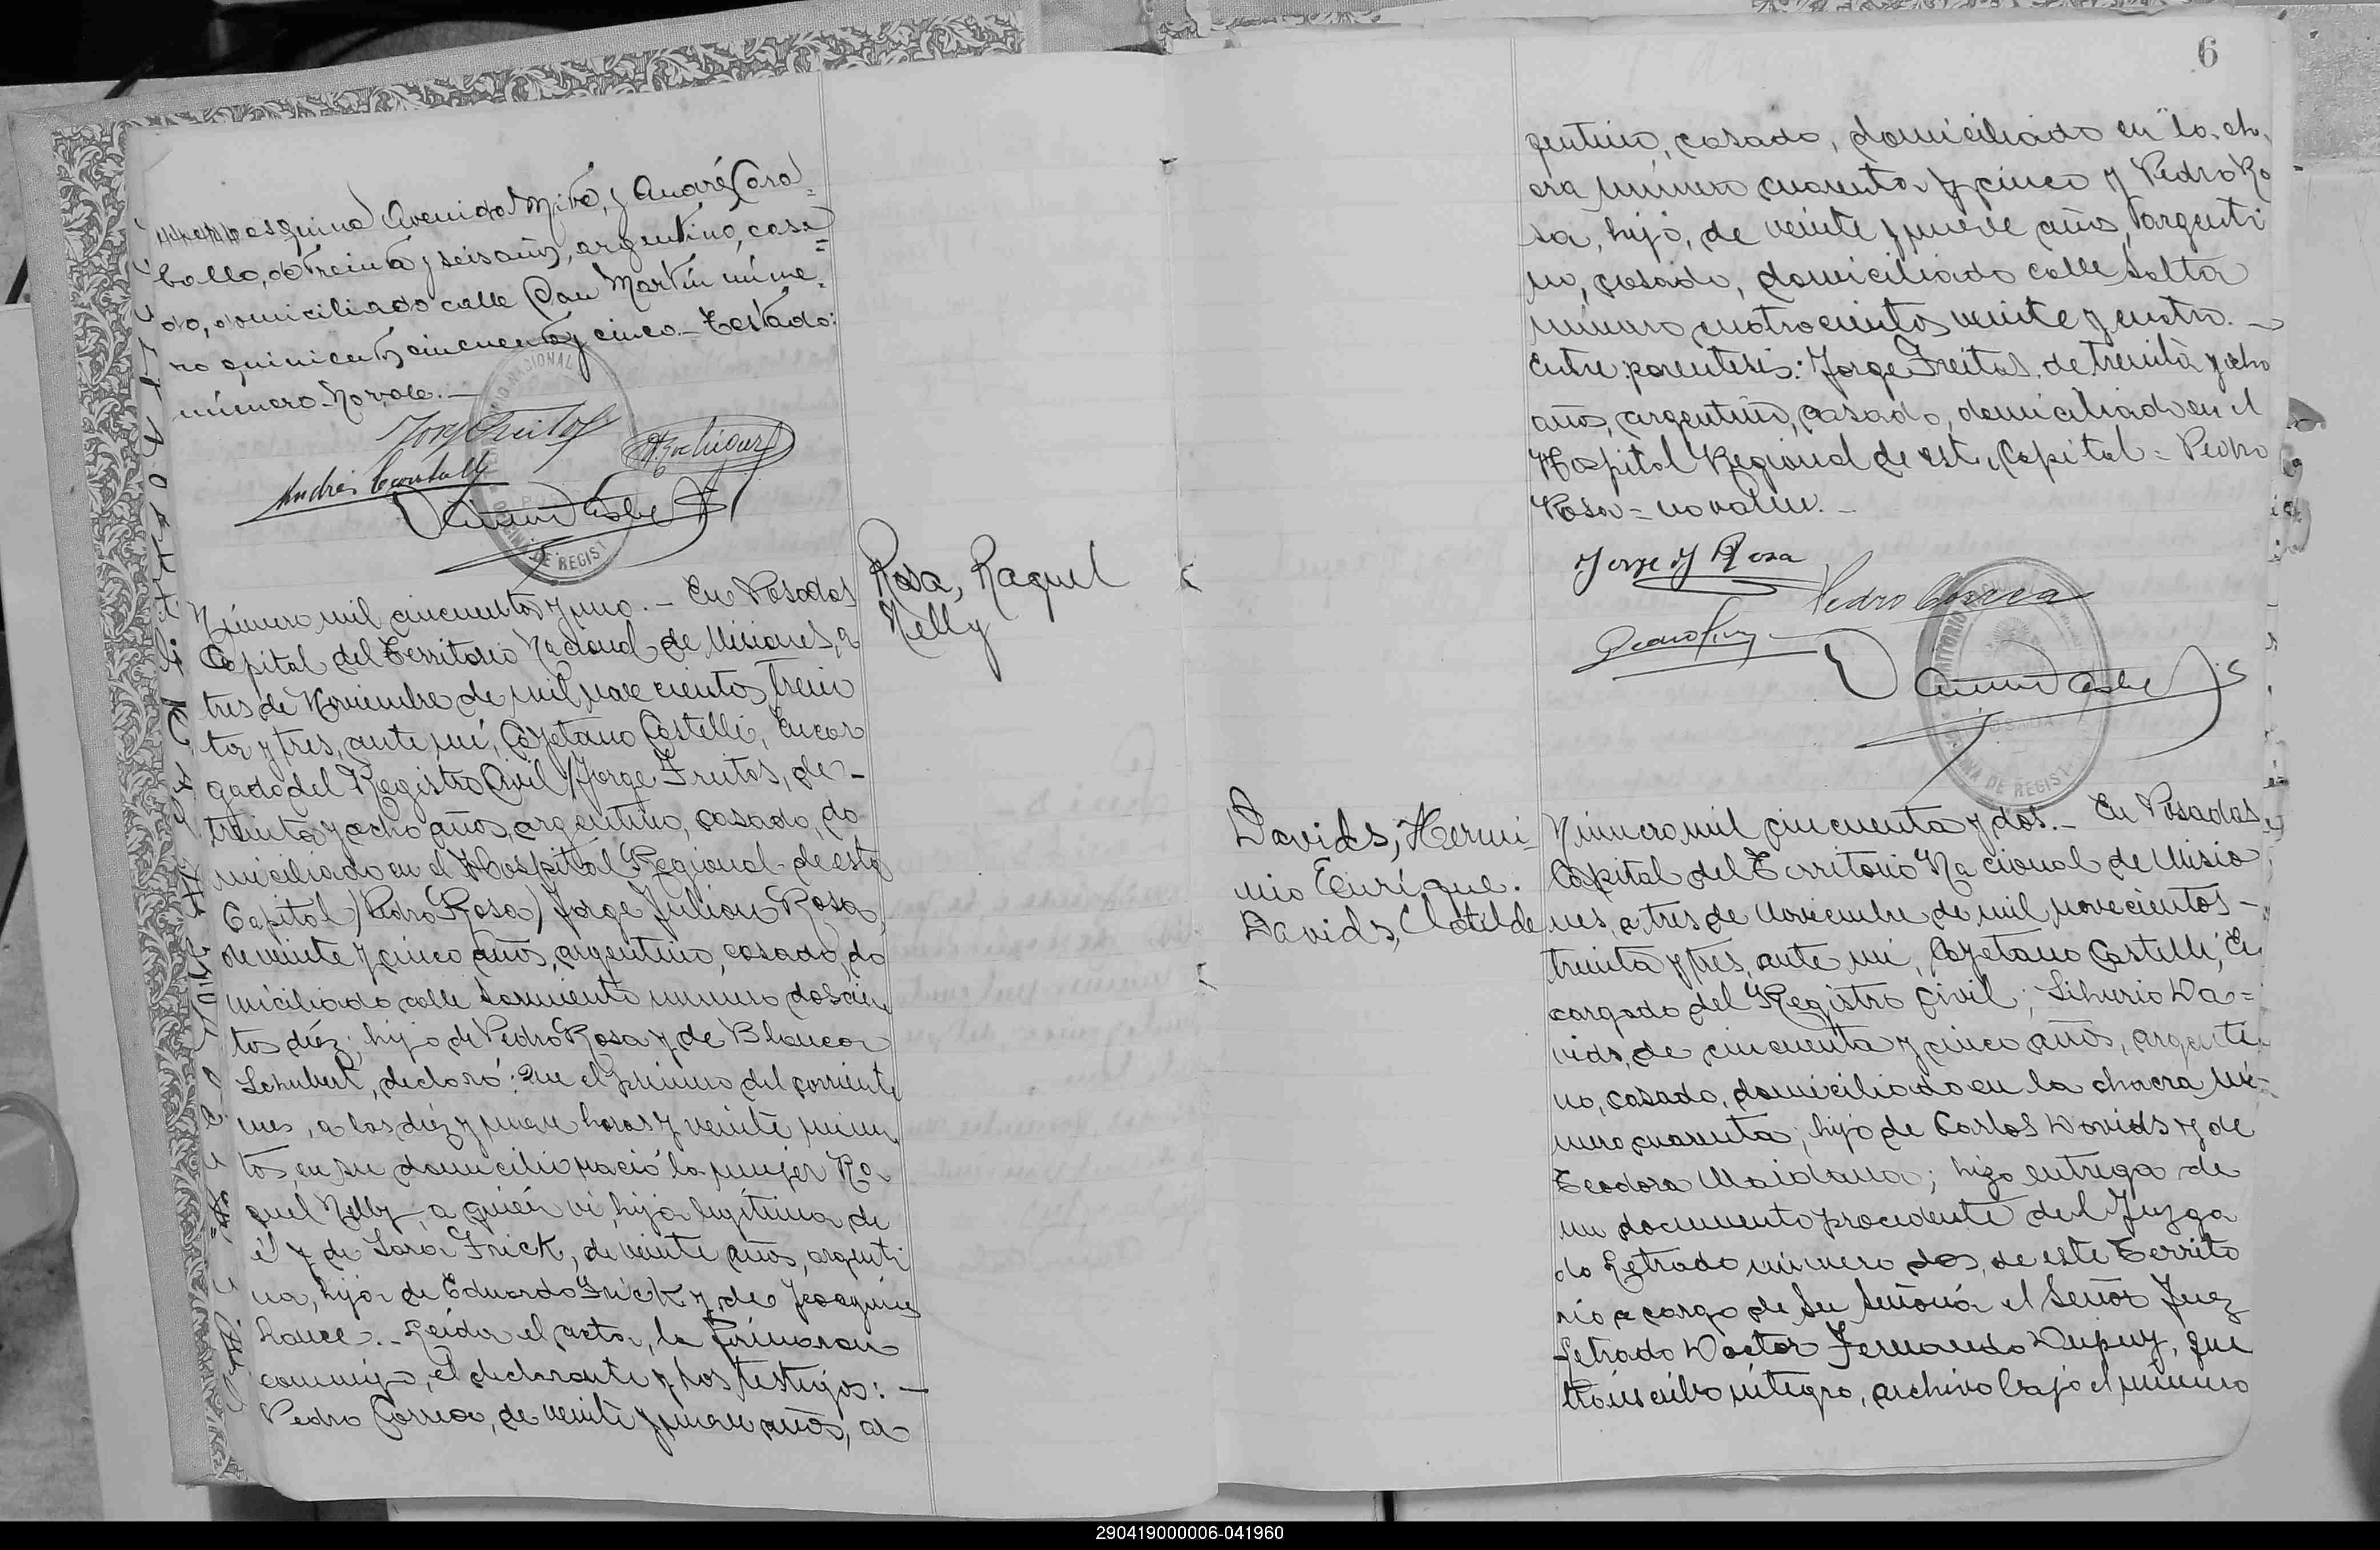 esquina Avenida Mitre, y Andrés Cara=
ballo, de treinta y seis años, argentino, casa=
do, domiciliado calle San Martín núme=
ro quinientos cincuenta y cinco.- Testado:
número. No vale.-
Número mil cincuenta y uno.- En Posadas
Capital del Territorio Nacional de Misiones, a
tres de Noviembre de mil novecientos trein
ta y tres, ante mí, Cayetano Castelli, Encar
gado del Registro Civil (Jorge Freitas, de -
treinta y ocho años, argentino, casado, do
miciliado en el Hospital Regional de esta
Capital) (Pedro Rosa) Jorge Julian Rosa,
de veinte y cinco años, argentino, casado, do
miciliado calle Sarmiento número doscien
tos diéz; hijo de Pedro Rosa y de Blanca
Schubert, declaró: Que el primero del corriente
mes, a las diéz y nueve horas y veinte minu
tos, en su domicilio nació la mujer Ra
quel Nelly, a quién ví, hija legítima de
él y de Sara Frick, de veinte años, argenti
na, hija de Eduardo Frick y de Joaquina
Leida el acta, la firmaron
conmigo, el declarante y los testigos: -
Pedro Correa, de veinte y nueve años, ar
Rosa, Raquel
Nelly
6
gentino, casado, domiciliado en la cha
cra número cuarenta y cinco y Pedro Ro
sa, hijo, de veinte y nueve años, argenti
no, casado, domiciliado calle Salta
número cuatrocientos veinte y cuatro. -
Entre parentesis: Jorge Freitas, de treinta y ocho
años, argentino, casado, domiciliado en el
Hospital Regional de esta Capital - Pedro
Rosa = no valen. -
Jorge J Rosa
Pedro Correa
Davids, Hermi
nio Enrique.
Davids, Clotilde
Número mil cincuenta y dos.- En Posadas
Capital del Territorio Nacional de Misio
nes, a tres de Noviembre de mil novecientos -
treinta y tres, ante mi, Cayetano Castelli, En
cargado del Registro Civil; Liborio Da=
vids, de cincuenta y cinco años, argenti
no, casado, domiciliado en la chacra nú-
mero cuarenta; hijo de Carlos Davids y de
Teodora Maidana; hizo entrega de
un documento procedente del Juzga
do Letrado número dos, de este Territo
rio a cargo de Su Señoría el Señor Juez
Letrado Doctor Fernando Dupuy, que
transcribo íntegro, archivo bajo el número
290419000006-041960